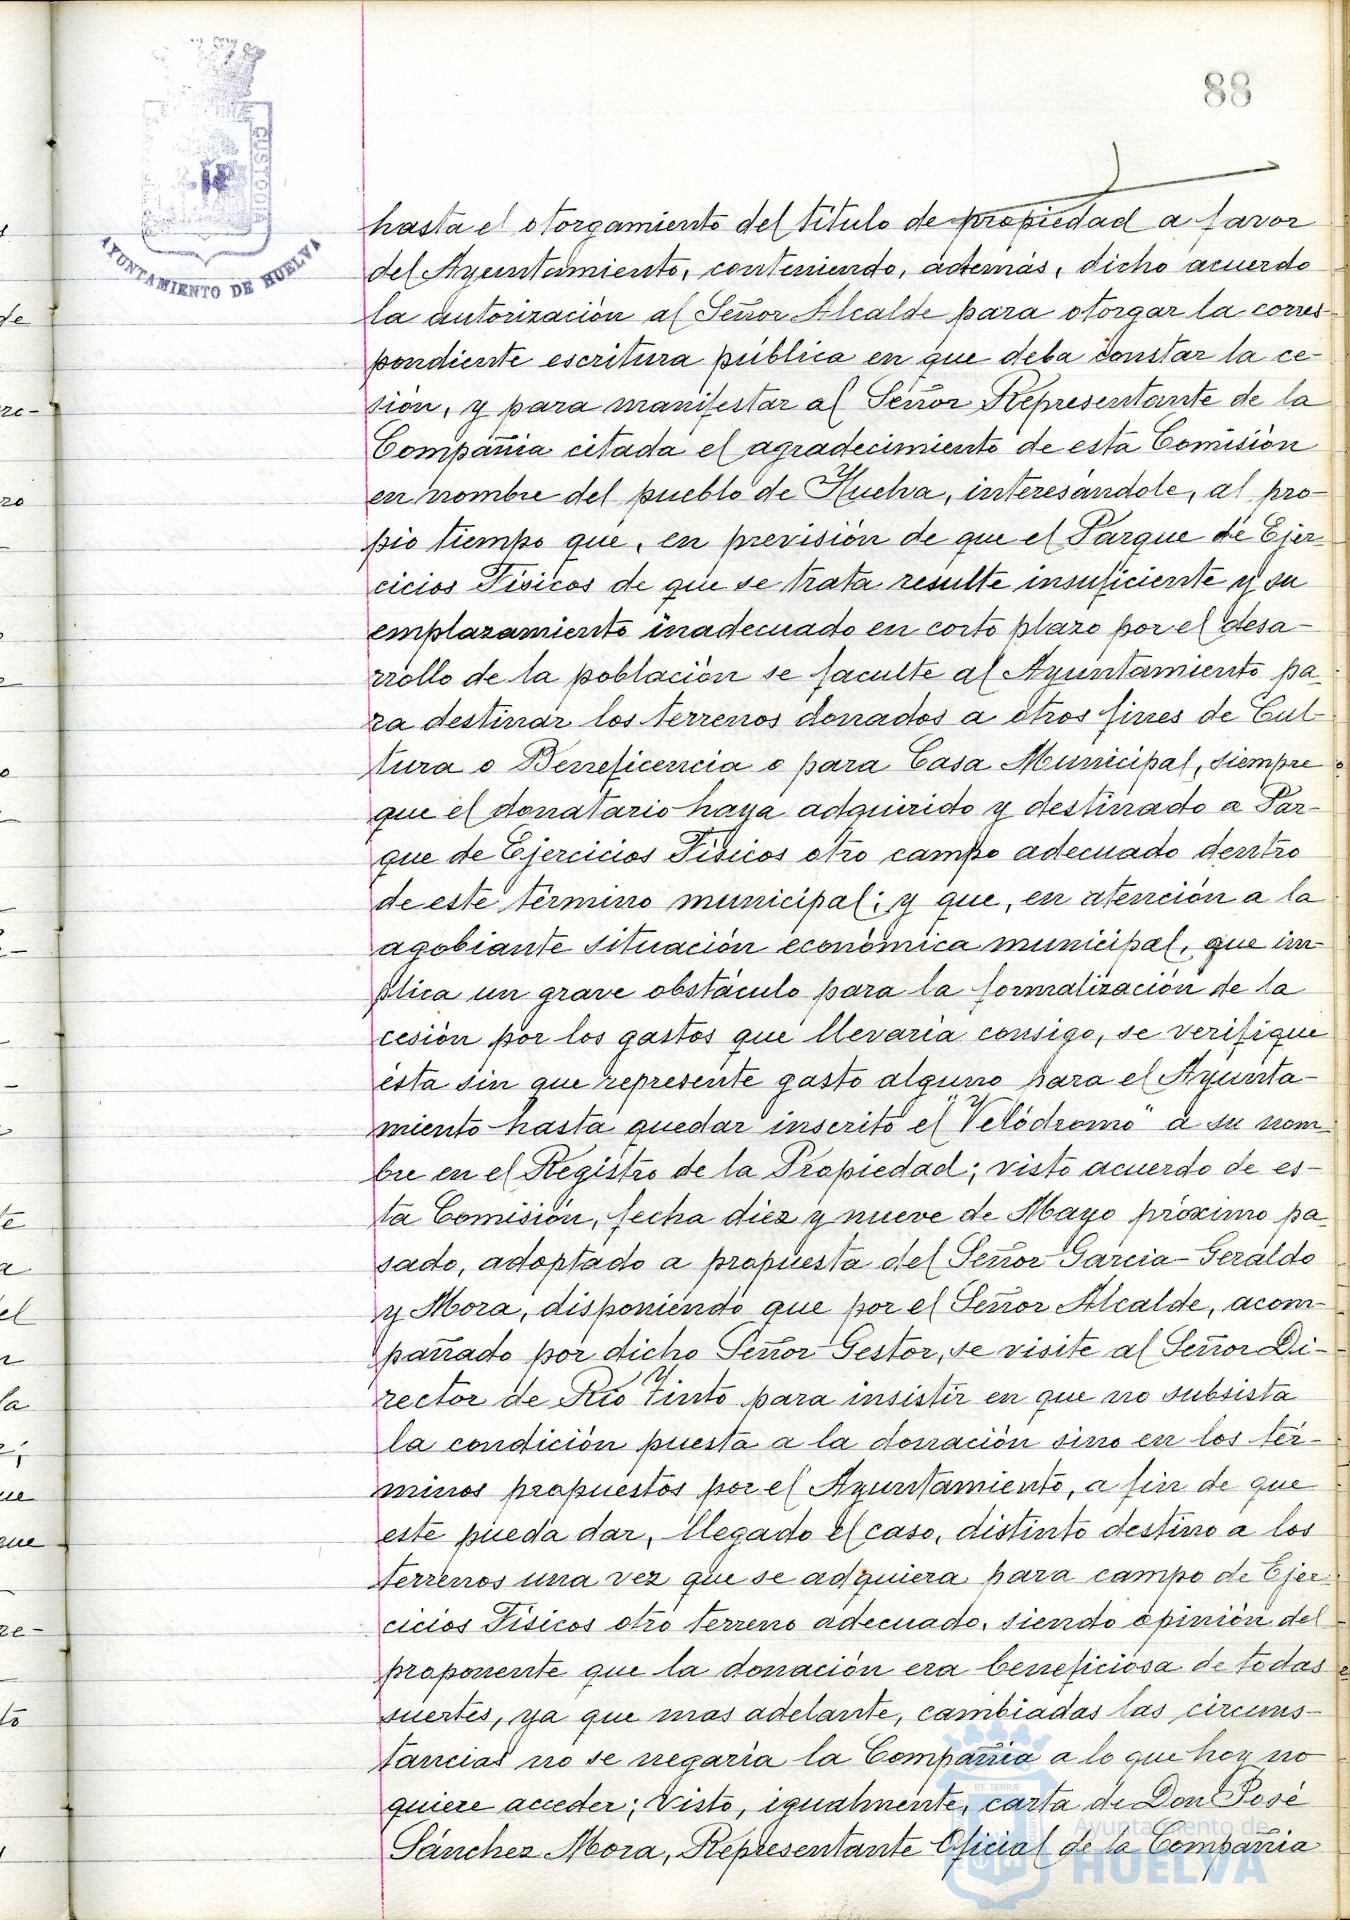 88
CUSTODIA
AYUNTAMIENTO DE HUELVA
hasta el otorgamiento del título de propiedad a favor
del Ayuntamiento, conteniendo, además, dicho acuerdo
la autorización al Señor Alcalde para otorgar la corres-
pondiente escritura pública en que deba constar la ce-
sión, y para manifestar al Señor Representante de la
Compañia citada el agradecimiento de esta Comisión
en nombre del pueblo de Huelva, interesándole, al pro-
pio tiempo que, en previsión de que el Parque de Ejer-
cicios Físicos de que se trata resulte insuficiente y su
emplazamiento inadecuado en corto plazo por el desa-
rrollo de la población se faculte al Ayuntamiento pa-
ra destinar los terrenos donados a otros fines de Cul-
tura o Beneficencia o para Casa Municipal, siempre
que el donatario haya adquirido y destinado a Par-
que de Ejercicios Físicos otro campo adecuado dentro
de este término municipal; y que, en atención a la
agobiante situación económica municipal, que im-
plica un grave obstáculo para la formalización de la
cesión por los gastos que llevaría consigo, se verifique
ésta sin que represente gasto alguno para el Ayunta-
miento hasta quedar inscrito el "Velódromo" a su nom-
bre en el Registro de la Propiedad; visto acuerdo de es-
ta Comisión, fecha diez y nueve de Mayo próximo pa-
sado, adoptado a propuesta del Señor García-Geraldo
y Mora, disponiendo que por el Señor Alcalde, acom-
pañado por dicho Señor Gestor, se visite al Señor Di-
rector de Río Tinto para insistir en que no subsista
la condición puesta a la donación sino en los tér-
minos propuestos por el Ayuntamiento, a fin de que
este pueda dar, llegado el caso, distinto destino a los
terrenos una vez que se adquiera para campo de Ejer-
cicios Físicos otro terreno adecuado, siendo opinión del
proponente que la donación era beneficiosa de todas
suertes, ya que mas adelante, cambiadas las circuns-
tancias no se negaría la Compañia a lo que hoy no
quiere acceder; visto, igualmente, carta de Don José
Sánchez Mora, Representante Oficial de la Compañia
Ayuntamiento de
HUELVA